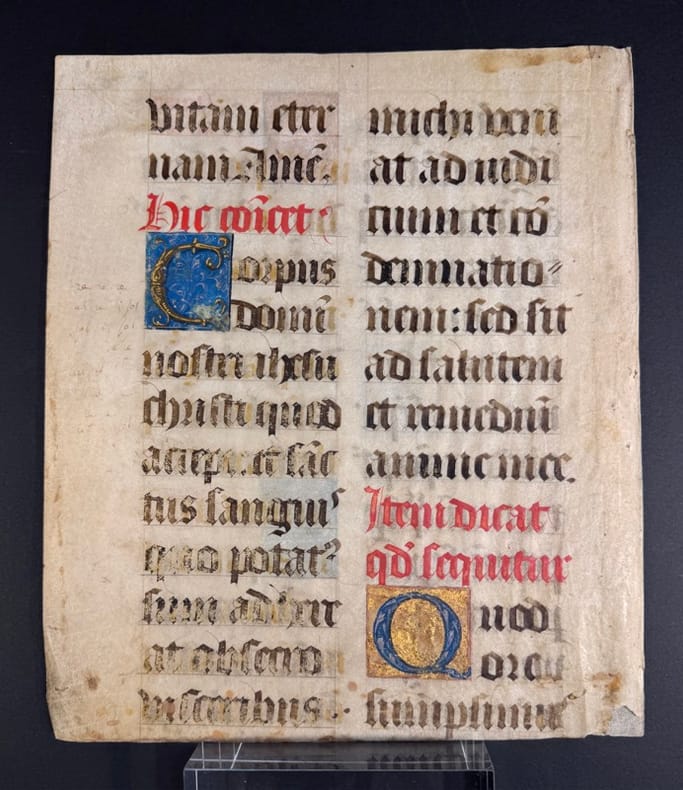 vitam eter
nam Amē.
Hic cōicet
Corpus
domī
nostri ihesu
christi quod
accepi et sāc
tus sanguis
quo potatꝰ
sum adhere
at absecro
visceribus
michi veni
at ad iudi
cium et cō
dempnatio〃
nem: sed sit
ad salutem
et remediū
anime mee.
Item dicat
qd̄ sequitur
Quod
ore
sumpsimus